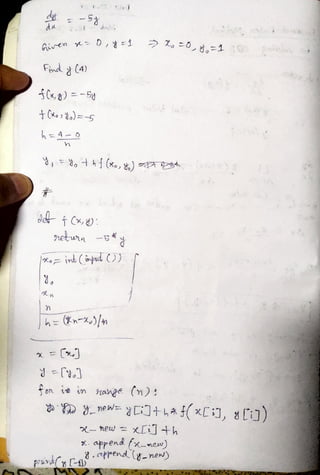 dy/dx = -5y
Given x = 0, y = 1 ⇒ x₀ = 0, y₀ = 1
Find y(4)
f(x,y) = -5y
f(x₀,y₀) = -5
h = 4-0/n
y₁ = y₀ + h f(x₀, y₀)
#
def f(x,y):
return -5*y
x₀ = int(input())
y₀
xn
n
h = (xn-x₀)/n
x = [x₀]
y = [y₀]
for i in range (n):
y_new = y[i]+h*f(x[i], y[i])
x_new = x[i]+h
x.append(x_new)
y.append(y_new)
print(y[-1])